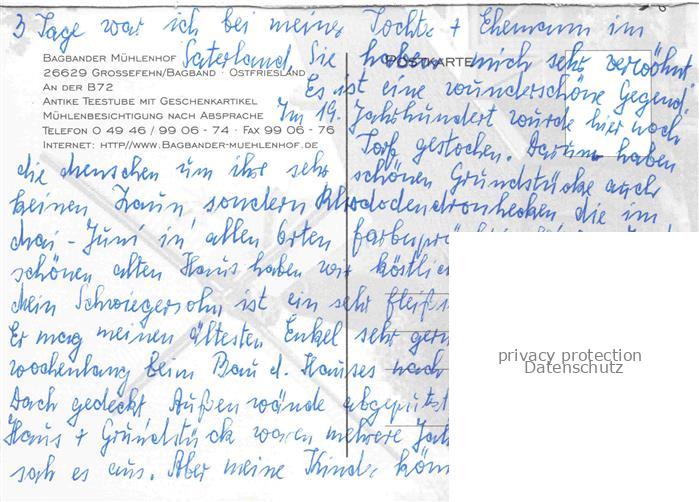 3 Tage war ich bei meiner Tochter + Ehemann im
Saterland. Sie haben mich sehr verwöhnt
BAGBANDER MÜHLENHOF
POSTKARTE
26629 GROSSEFEHN/BAGBAND · OSTFRIESLAND
AN DER B72
ANTIKE TEESTUBE MIT GESCHENKARTIKEL
MÜHLENBESICHTIGUNG NACH ABSPRACHE
TELEFON 0 49 46 / 99 06 - 74 · FAX 99 06 - 76
INTERNET: HTTP//WWW.BAGBANDER-MUEHLENHOF.DE
Es ist eine wunderschöne Gegend.
Im 19. Jahrhundert wurde hier noch
Torf gestochen. Darum haben
die Menschen um ihre sehr schönen Grundstücke auch
keinen Zaun sondern Rhododendronhecken die im
Mai - Juni in allen Orten
schönen alten Haus haben wir
Mein Schwiegersohn ist ein sehr
Er mag meinen ältesten Enkel sehr
wochenlang beim Bau d. Hauses nach
Dach gedeckt Außenwände abgeputzt
Haus + Grundstück waren mehrere
sah es aus. Aber meine Kinder
privacy protection
Datenschutz